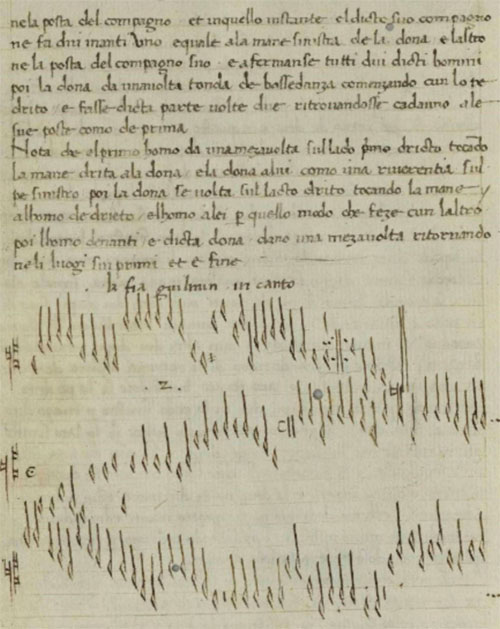 nela posta del compagno et in quello instante el dicto suo compagno
ne fa dui inanti Uno equale ala mane sinistra de la dona e laltro
ne la posta del compagno suo e afermanse tutti dui dicti homini
poi la dona da una uolta tonda de bassedanza comenzando cun lo pe
drito e fasse dicta parte uolte due ritrouandosse cadauno ale
sue poste como de prima
Nota che el primo homo da una mezauolta sul lado primo dricto tocando
la mane drita ala dona e la dona alui como una riuerentia sul
pe sinistro poi la dona se uolta sul lacto drito tocando la mane
alhomo de drieto elhomo alei p quello modo che feze cun laltro
poi lhomo denanti e dicta dona dano una mezauolta ritornando
neli luogi sui primi et e fine
la fia guilmin in canto
.2.